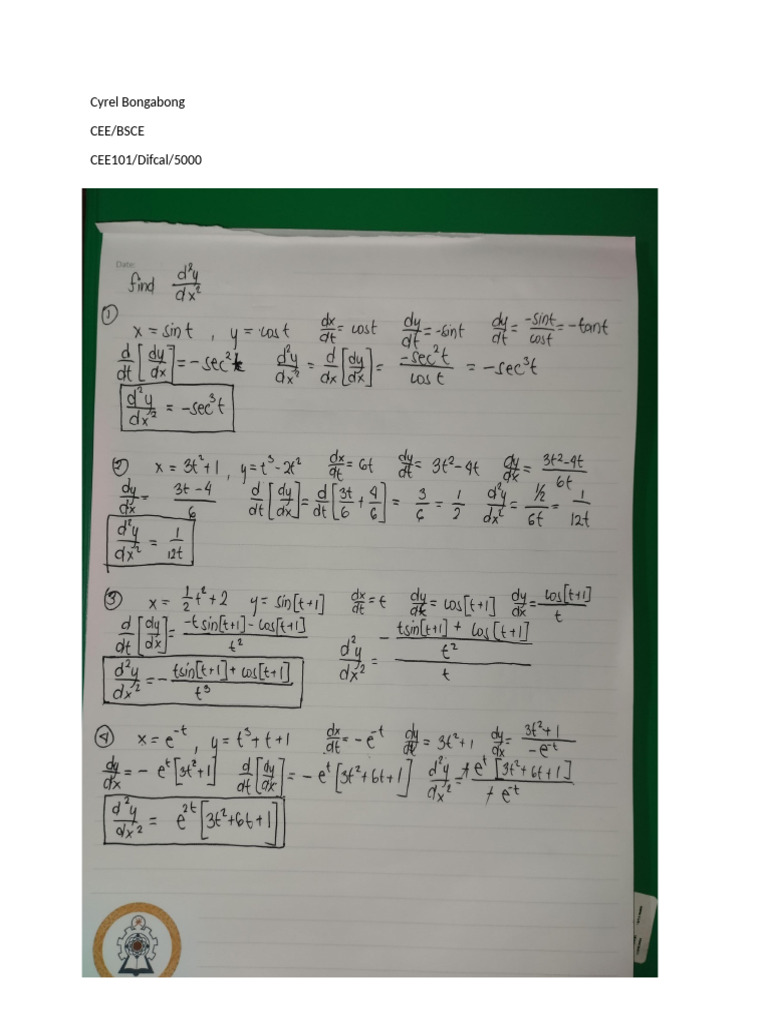 Cyrel Bongabong
CEE/BSCE
CEE101/Difcal/5000
Date:
find d²y/dx²
① x = sin t , y = cos t dx/dt = cos t dy/dt = -sin t dy/dt = -sin t/cos t = -tan t
d/dt [dy/dx] = -sec²t d²y/dx² = d/dx [dy/dx] = -sec²t/cos t = -sec³t
d²y/dx² = -sec³t
② x = 3t²+1 , y = t³-2t² dx/dt = 6t dy/dt = 3t²-4t dy/dx = 3t²-4t/6t
dy/dx = 3t-4/6 d/dt [dy/dx] = d/dt [3t/6 + 4/6] = 3/6 = 1/2 d²y/dx² = ½/6t = 1/12t
d²y/dx² = 1/12t
③ x = ½t²+2 y = sin[t+1] dx/dt = t dy/dt = cos[t+1] dy/dx = cos[t+1]/t
d/dt [dy/dx] = -t sin[t+1] - cos[t+1]/t² d²y/dx² = - tsin[t+1] + cos[t+1]/t²/t
d²y/dx² = - tsin[t+1] + cos[t+1]/t³
④ x = e⁻ᵗ , y = t³+t+1 dx/dt = -e⁻ᵗ dy/dt = 3t²+1 dy/dx = 3t²+1/-e⁻ᵗ
dy/dx = - eᵗ[3t²+1] d/dt [dy/dx] = - eᵗ[3t²+6t+1] d²y/dx² = -eᵗ[3t²+6t+1]/-e⁻ᵗ
d²y/dx² = e²ᵗ[3t²+6t+1]